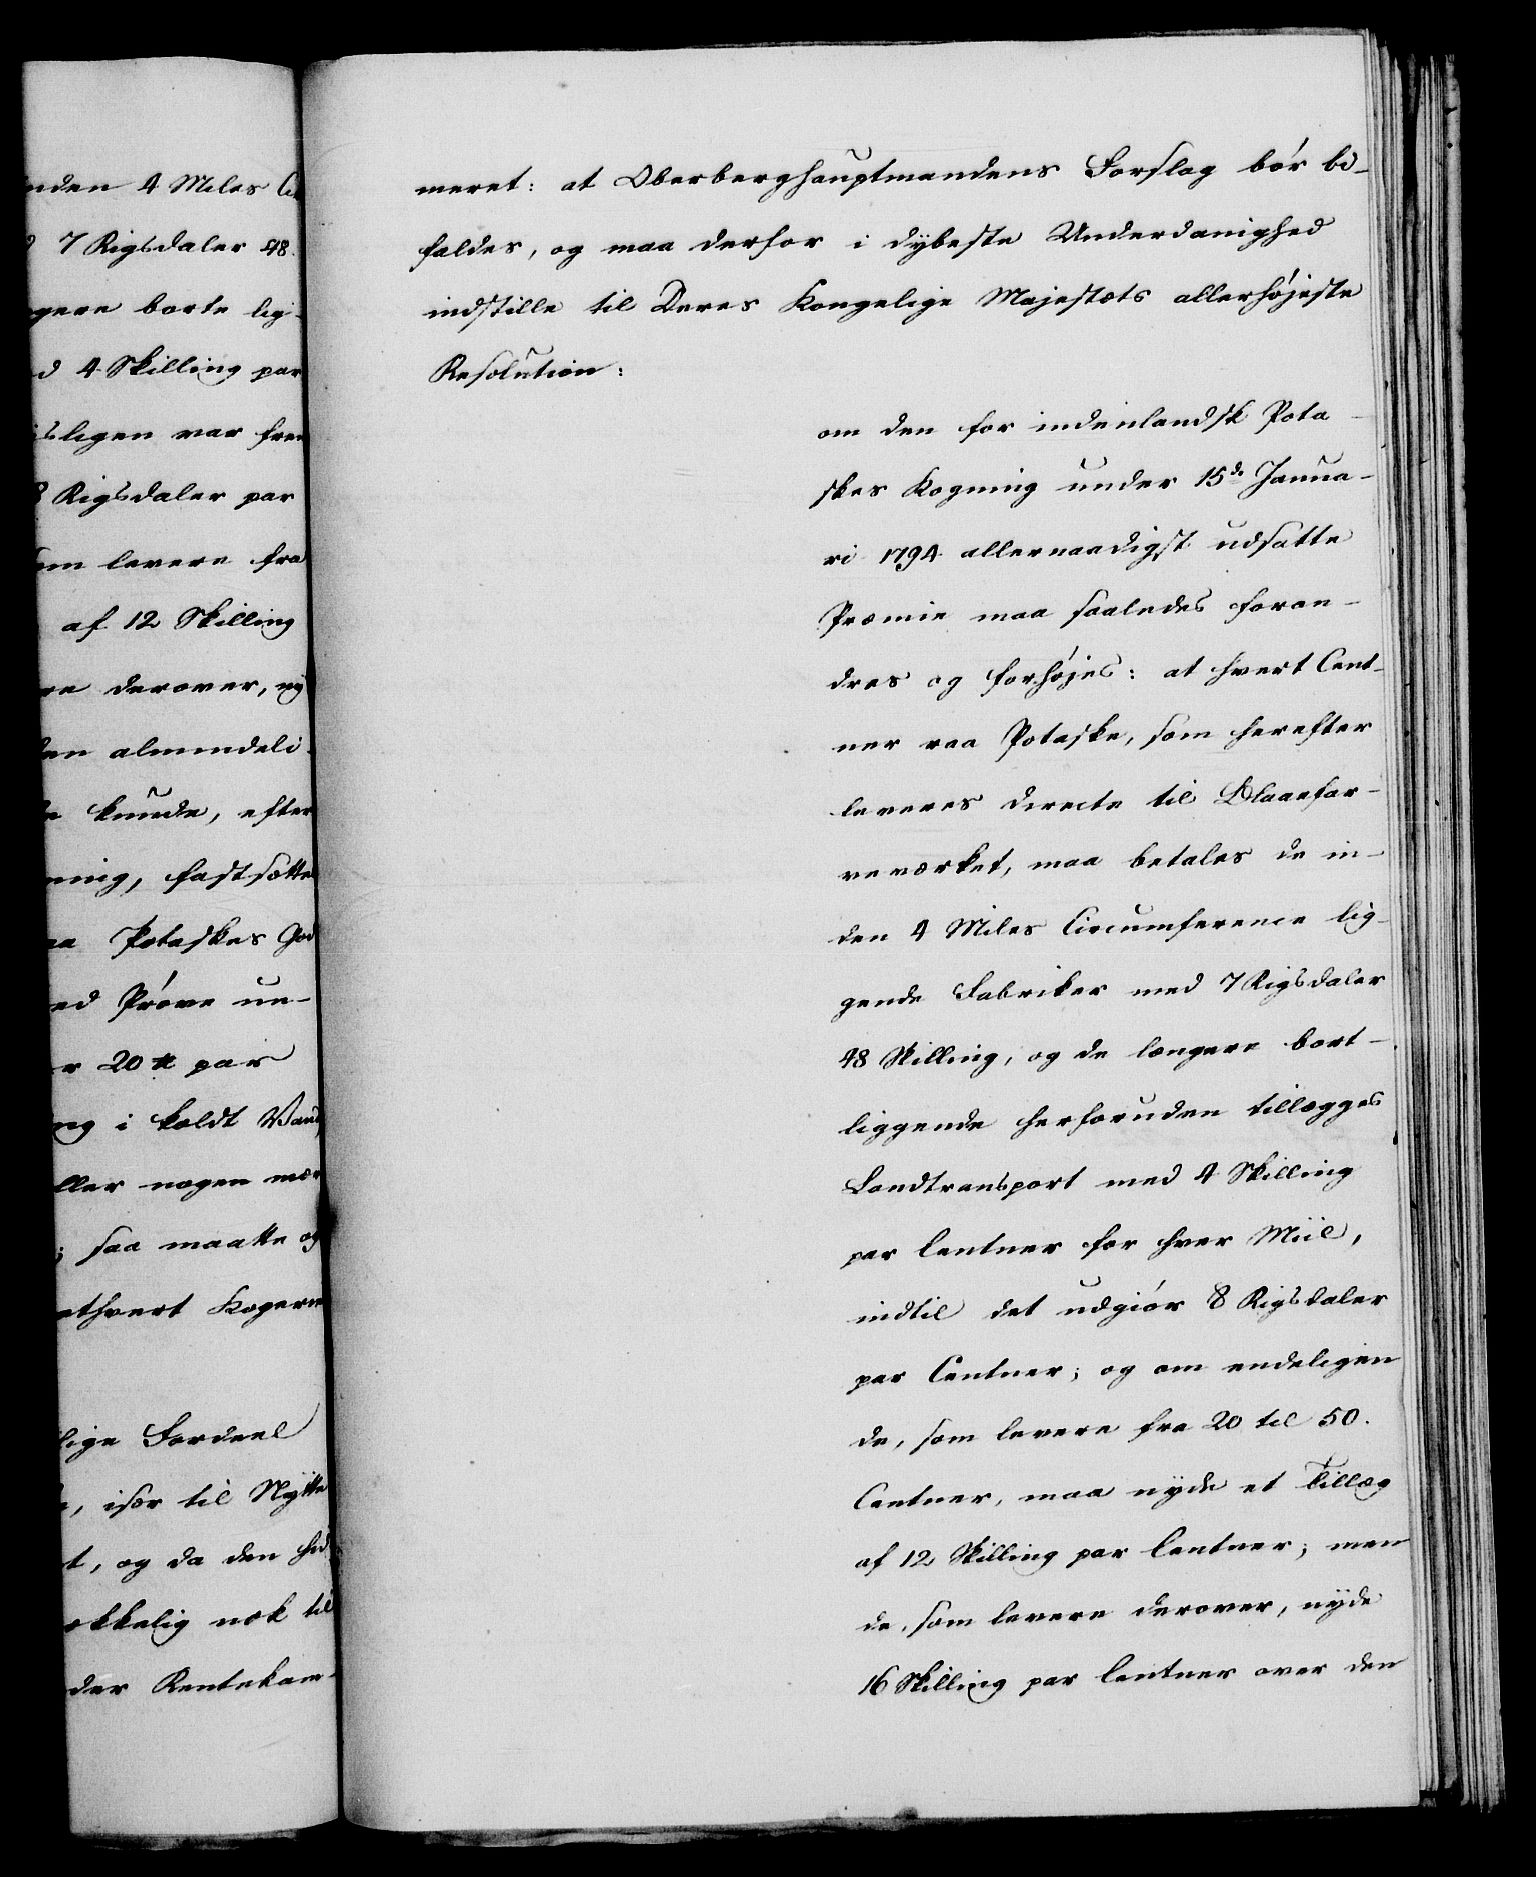 nden 4 Miles Ci
d 7 Rigsdaler 48.
gere borte lig-
d 4 Skilling par
ligen var frem
8 Rigsdaler par
om levere fra
af 12 Skilling
re derover, ny
den almindeli-
kunde, efter
ning, fastsætte
aa Potaskes God
ed Prøve un-
r 20 ℔ par
ng i koldt Vand
ller nogen mær
; saa maatte og
ethvert Kogerie
lige Fordeel
, især til Nytte
t, og da den hid
ekkelig nok til
der Rentekam-
meret: at Oberberghauptmandens Forslag bør bi-
faldes, og maa derfor i dybeste Underdanighed
indstille til Deres Kongelige Majestæts allerhøjeste
Resolution:
om den for indenlandsk Pota-
skes Kogning under 15de Janua-
ri 1794 allernaadigst udsatte
Præmie maa saaledes foran-
dres og forhøjes: at hvert Cent-
ner raa Potaske, som herefter
leveres directe til Blaaefar-
veværket, maa betales de in-
den 4 Miles Circumference lig-
gende Fabriker med 7 Rigsdaler
48 Skilling, og de længere bort-
liggende herforuden tillægges
Landtransport med 4 Skilling
par Centner for hver Miil,
indtil det udgiør 8 Rigsdaler
par Centner; og om endeligen
de, som levere fra 20 til 50.
Centner, maa nyde et Tillæg
af 12 Skilling par Centner; men
de, som levere derover, nyde
16 Skilling par Centner over den